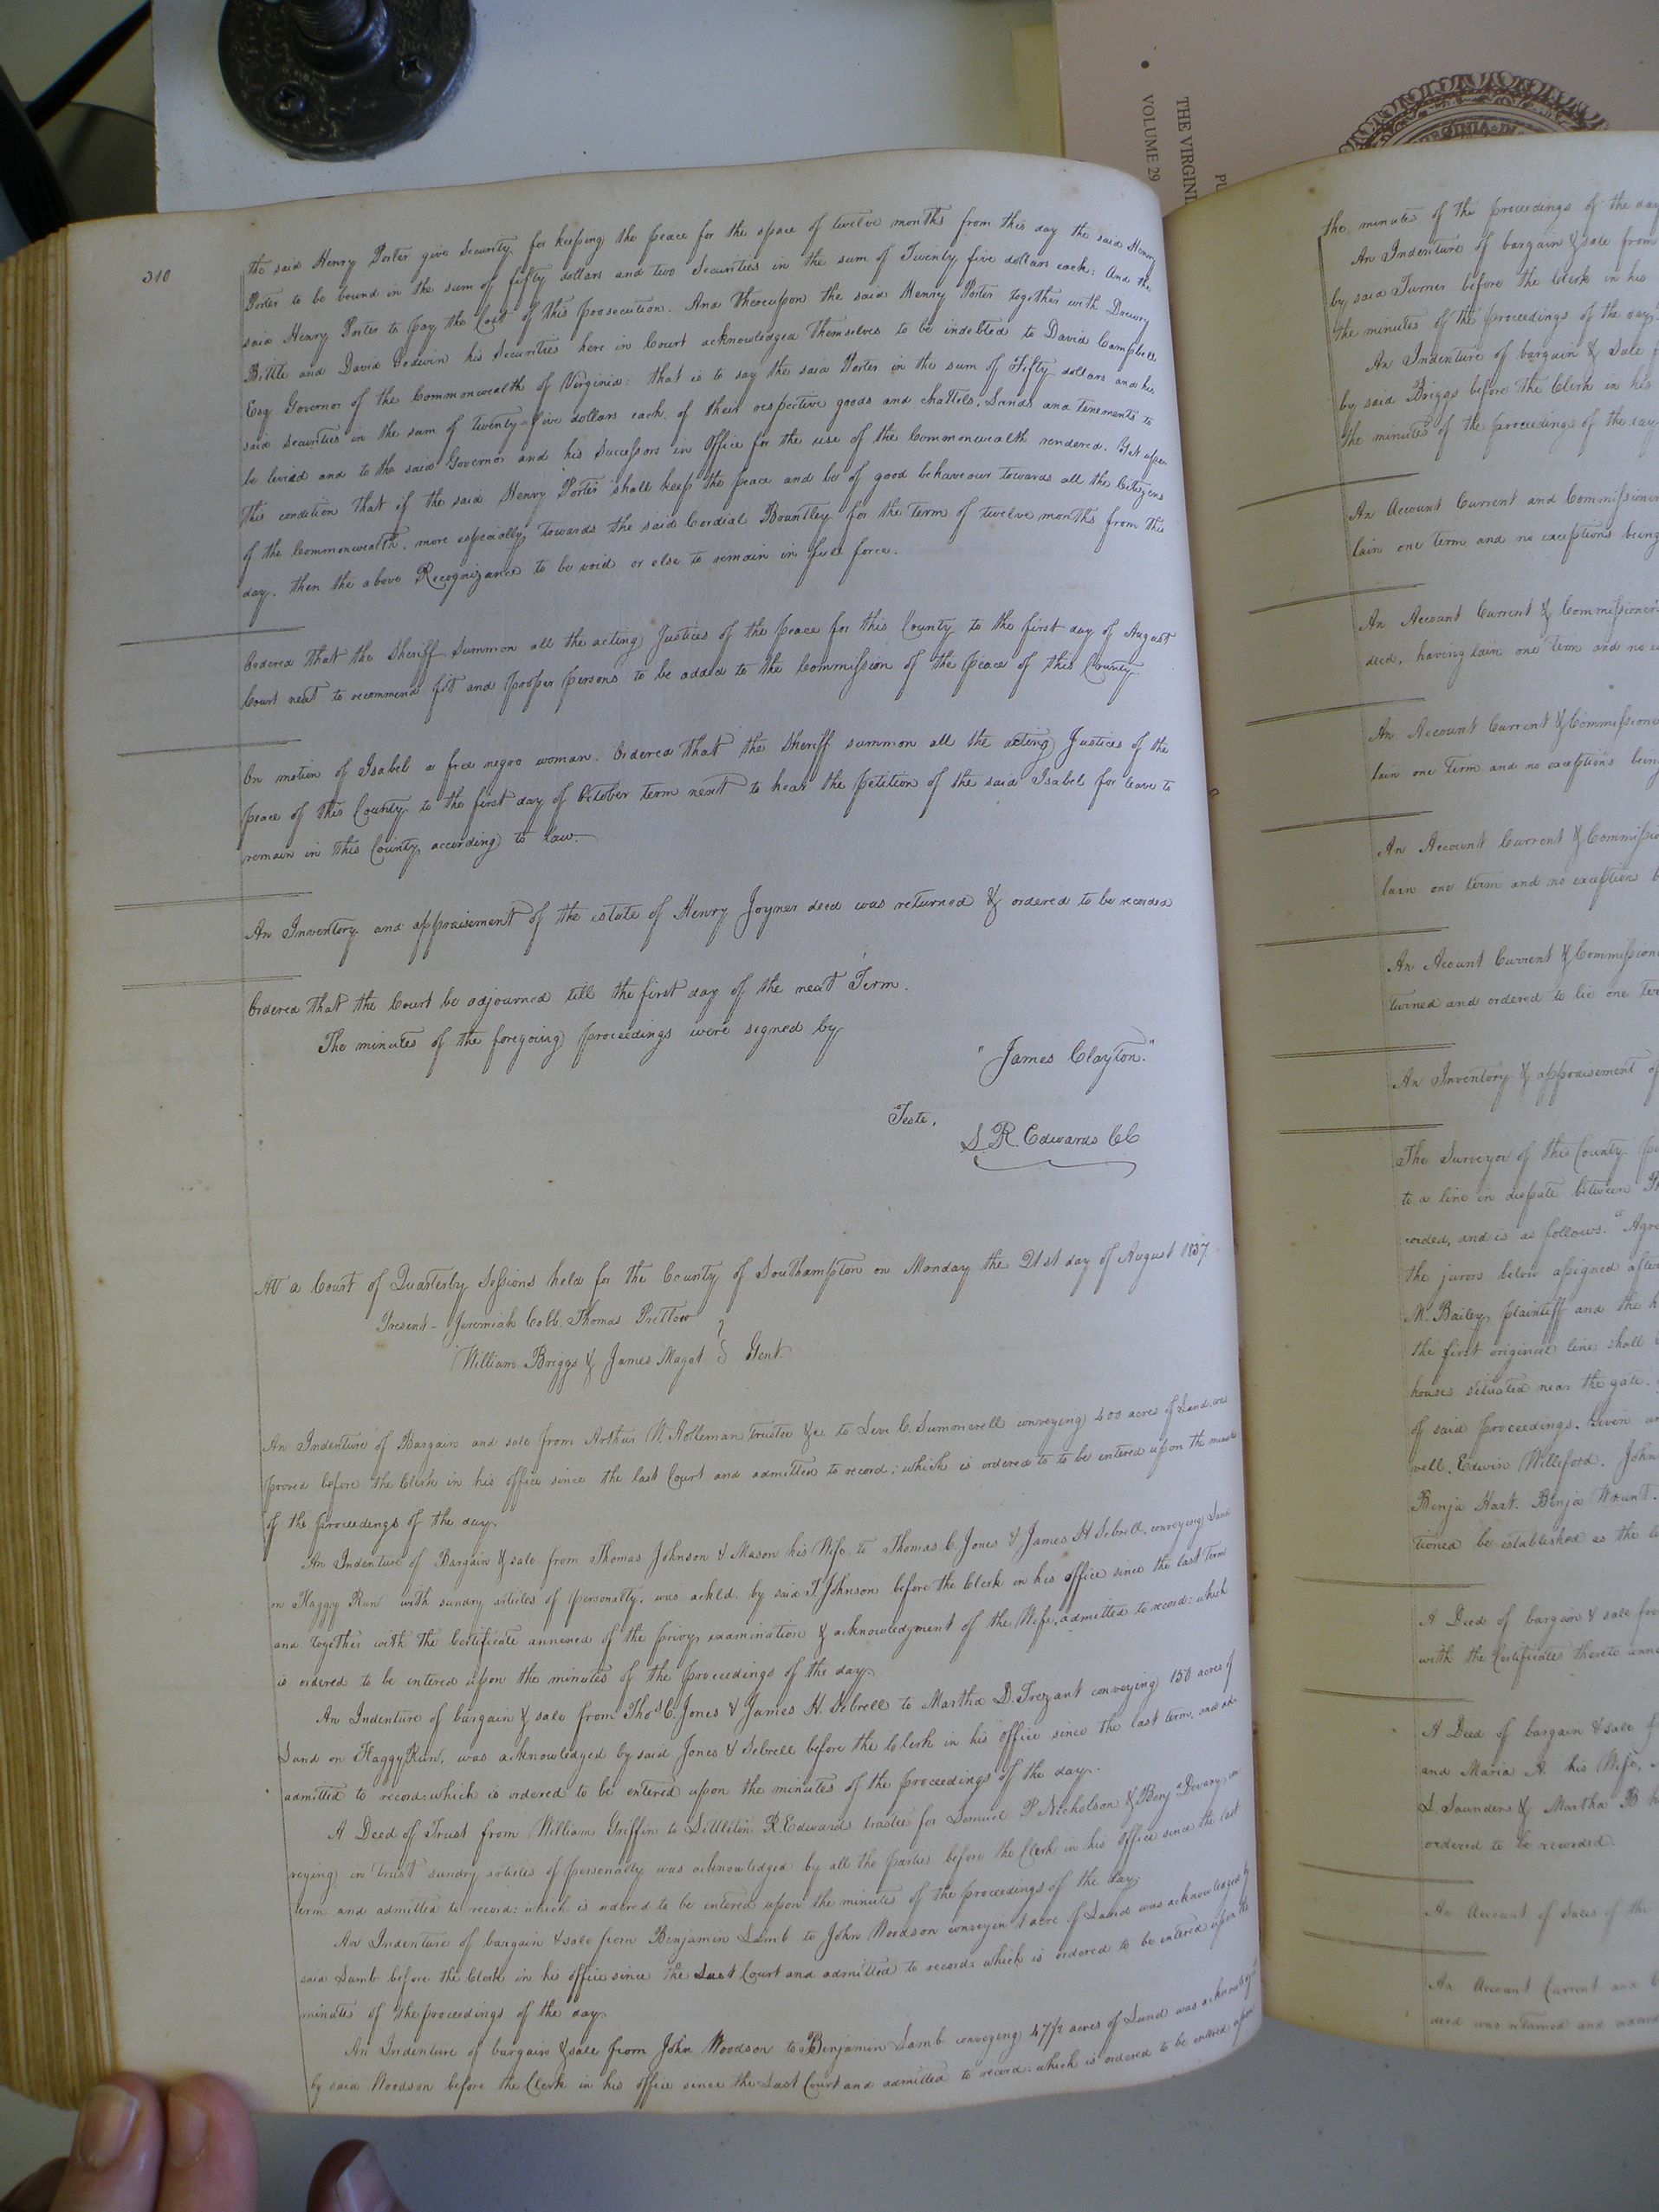 PU
THE VIRGINI
VOLUME 29
310
the said Henry Porter give Security for keeping the peace for the space of twelve months from this day the said Henry
Porter to be bound in the sum of fifty dollars and two Securities in the sum of Twenty five dollars each: And the
said Henry Porter to pay the Cost of this prosecution. And thereupon the said Henry Porter together with Drewry
Bittle and David Godwin his Securities here in Court acknowledged themselves to be indebted to David Campbell
Esq Governor of the Commonwealth of Virginia: that is to say the said Porter in the sum of Fifty dollars and his
said Securities in the sum of twenty=five dollars each, of their respective goods and chattels, Lands and tenements to
be levied and to the said Governor and his Successors in Office for the use of the Commonwealth rendered. Yet upon
this condition that if the said Henry Porter shall keep the peace and be of good behaveour towards all the Citizens
of the Commonwealth, more especially towards the said Cordial Bountley for the term of twelve months from this
day, then the above Recognizance to be void or else to remain in full force.
Ordered that the Sheriff Summon all the acting Justices of the Peace for this County to the first day of August
Court next to recommend fit and proper persons to be added to the Commission of the Peace of this County.
On motion of Isabel a free negro woman. Ordered that the Sheriff summon all the acting Justices of the
peace of this County to the first day of October term next to hear the petition of the said Isabel for leave to
remain in this County according to law.
An Inventory and appraisement of the estate of Henry Joyner decd was returned & ordered to be recorded
Ordered that the Court be adjourned till the first day of the next Term.
The minutes of the foregoing proceedings were signed by
"James Clayton."
Teste,
L. R. Edwards CC
At a Court of Quarterly Sessions held for the County of Southampton on Monday the 21st day of August 1837
Present - Jeremiah Cobb, Thomas Pretlow
William Briggs & James Magot } Gent.
An Indenture of Bargain and sale from Arthur W. Holleman trustee &c. to Levi C. Summerell conveying 400 acres of Land, was
proved before the Clerk in his office since the last Court and admitted to record; which is ordered to to be entered upon the minutes
of the proceedings of the day.
An Indenture of Bargain & sale from Thomas Johnson & Mason his Wife to Thomas C. Jones & James H Sebrell, conveying Land
on Flaggy Run with sundry articles of personalty, was ackld. by said T. Johnson before the Clerk in his office since the last Term
and together with the Certificate annexed of the privy examination & acknowledgment of the Wife, admitted to record: which
is ordered to be entered upon the minutes of the proceedings of the day.
An Indenture of bargain & sale from Thos. C. Jones & James H. Sebrell to Martha D. Trezvant conveying 150 acres of
Land on Flaggy Run, was acknowledged by said Jones & Sebrell before the Clerk in his office since the last term, and
admitted to record: which is ordered to be entered upon the minutes of the proceedings of the day.
A Deed of Trust from William Griffin to Littleton R. Edwards trustee for Samuel P. Nicholson & Benj Devany con
veying in trust sundry articles of personalty was acknowledged by all the parties before the Clerk in his office since the last
term and admitted to record: which is ordered to be entered upon the minutes of the proceedings of the day.
An Indenture of bargain & sale from Benjamin Lamb to John Woodson conveyen 1 acre of Land was acknowledged by
said Lamb before the Clerk in his office since the Last Court and admitted to record: which is ordered to be entered upon the
minutes of the proceedings of the day
An Indenture of bargain & sale from John Woodson to Benjamin Lamb conveying 47 1/2 acres of Land was acknowledged
by said Woodson before the Clerk in his office since the Last Court and admitted to record: which is ordered to be entered upon
the minutes of the proceedings of the day
An Indenture of bargain & sale from
by said Turner before the Clerk in his
the minutes of the proceedings of the day
An Indenture of bargain & Sale
by said Briggs before the Clerk in his
the minutes of the proceedings of the day
An Account Current and Commissioner
lain one term and no exceptions being
An Account Current & Commissioner's
decd, having lain one term and no
An Account Current & Commissione
lain one term and no exceptions bein
An Account Current & Commissio
lain one term and no exceptions
An Account Current & Commission
turned and ordered to lie one ter
An Inventory & appraisement of
The Surveyor of this County
to a line in dispute between
corded, and is as follows. "Agre
the jurors below assigned after
W. Bailey plaintiff and the
the first original line shall
houses situated near the gate.
of said proceedings. Given
vell, Edwin Williford, John
Benja Hart. Benja Wount.
tioned be established as the
A Deed of bargain & sale fro
with the Certificates thereto anne
A Deed of bargain & sale
and Maria A. his Wife,
L. Saunders & Martha B
ordered to be recorded.
An Account of Sales of the
An Account Current and
decd was returned and